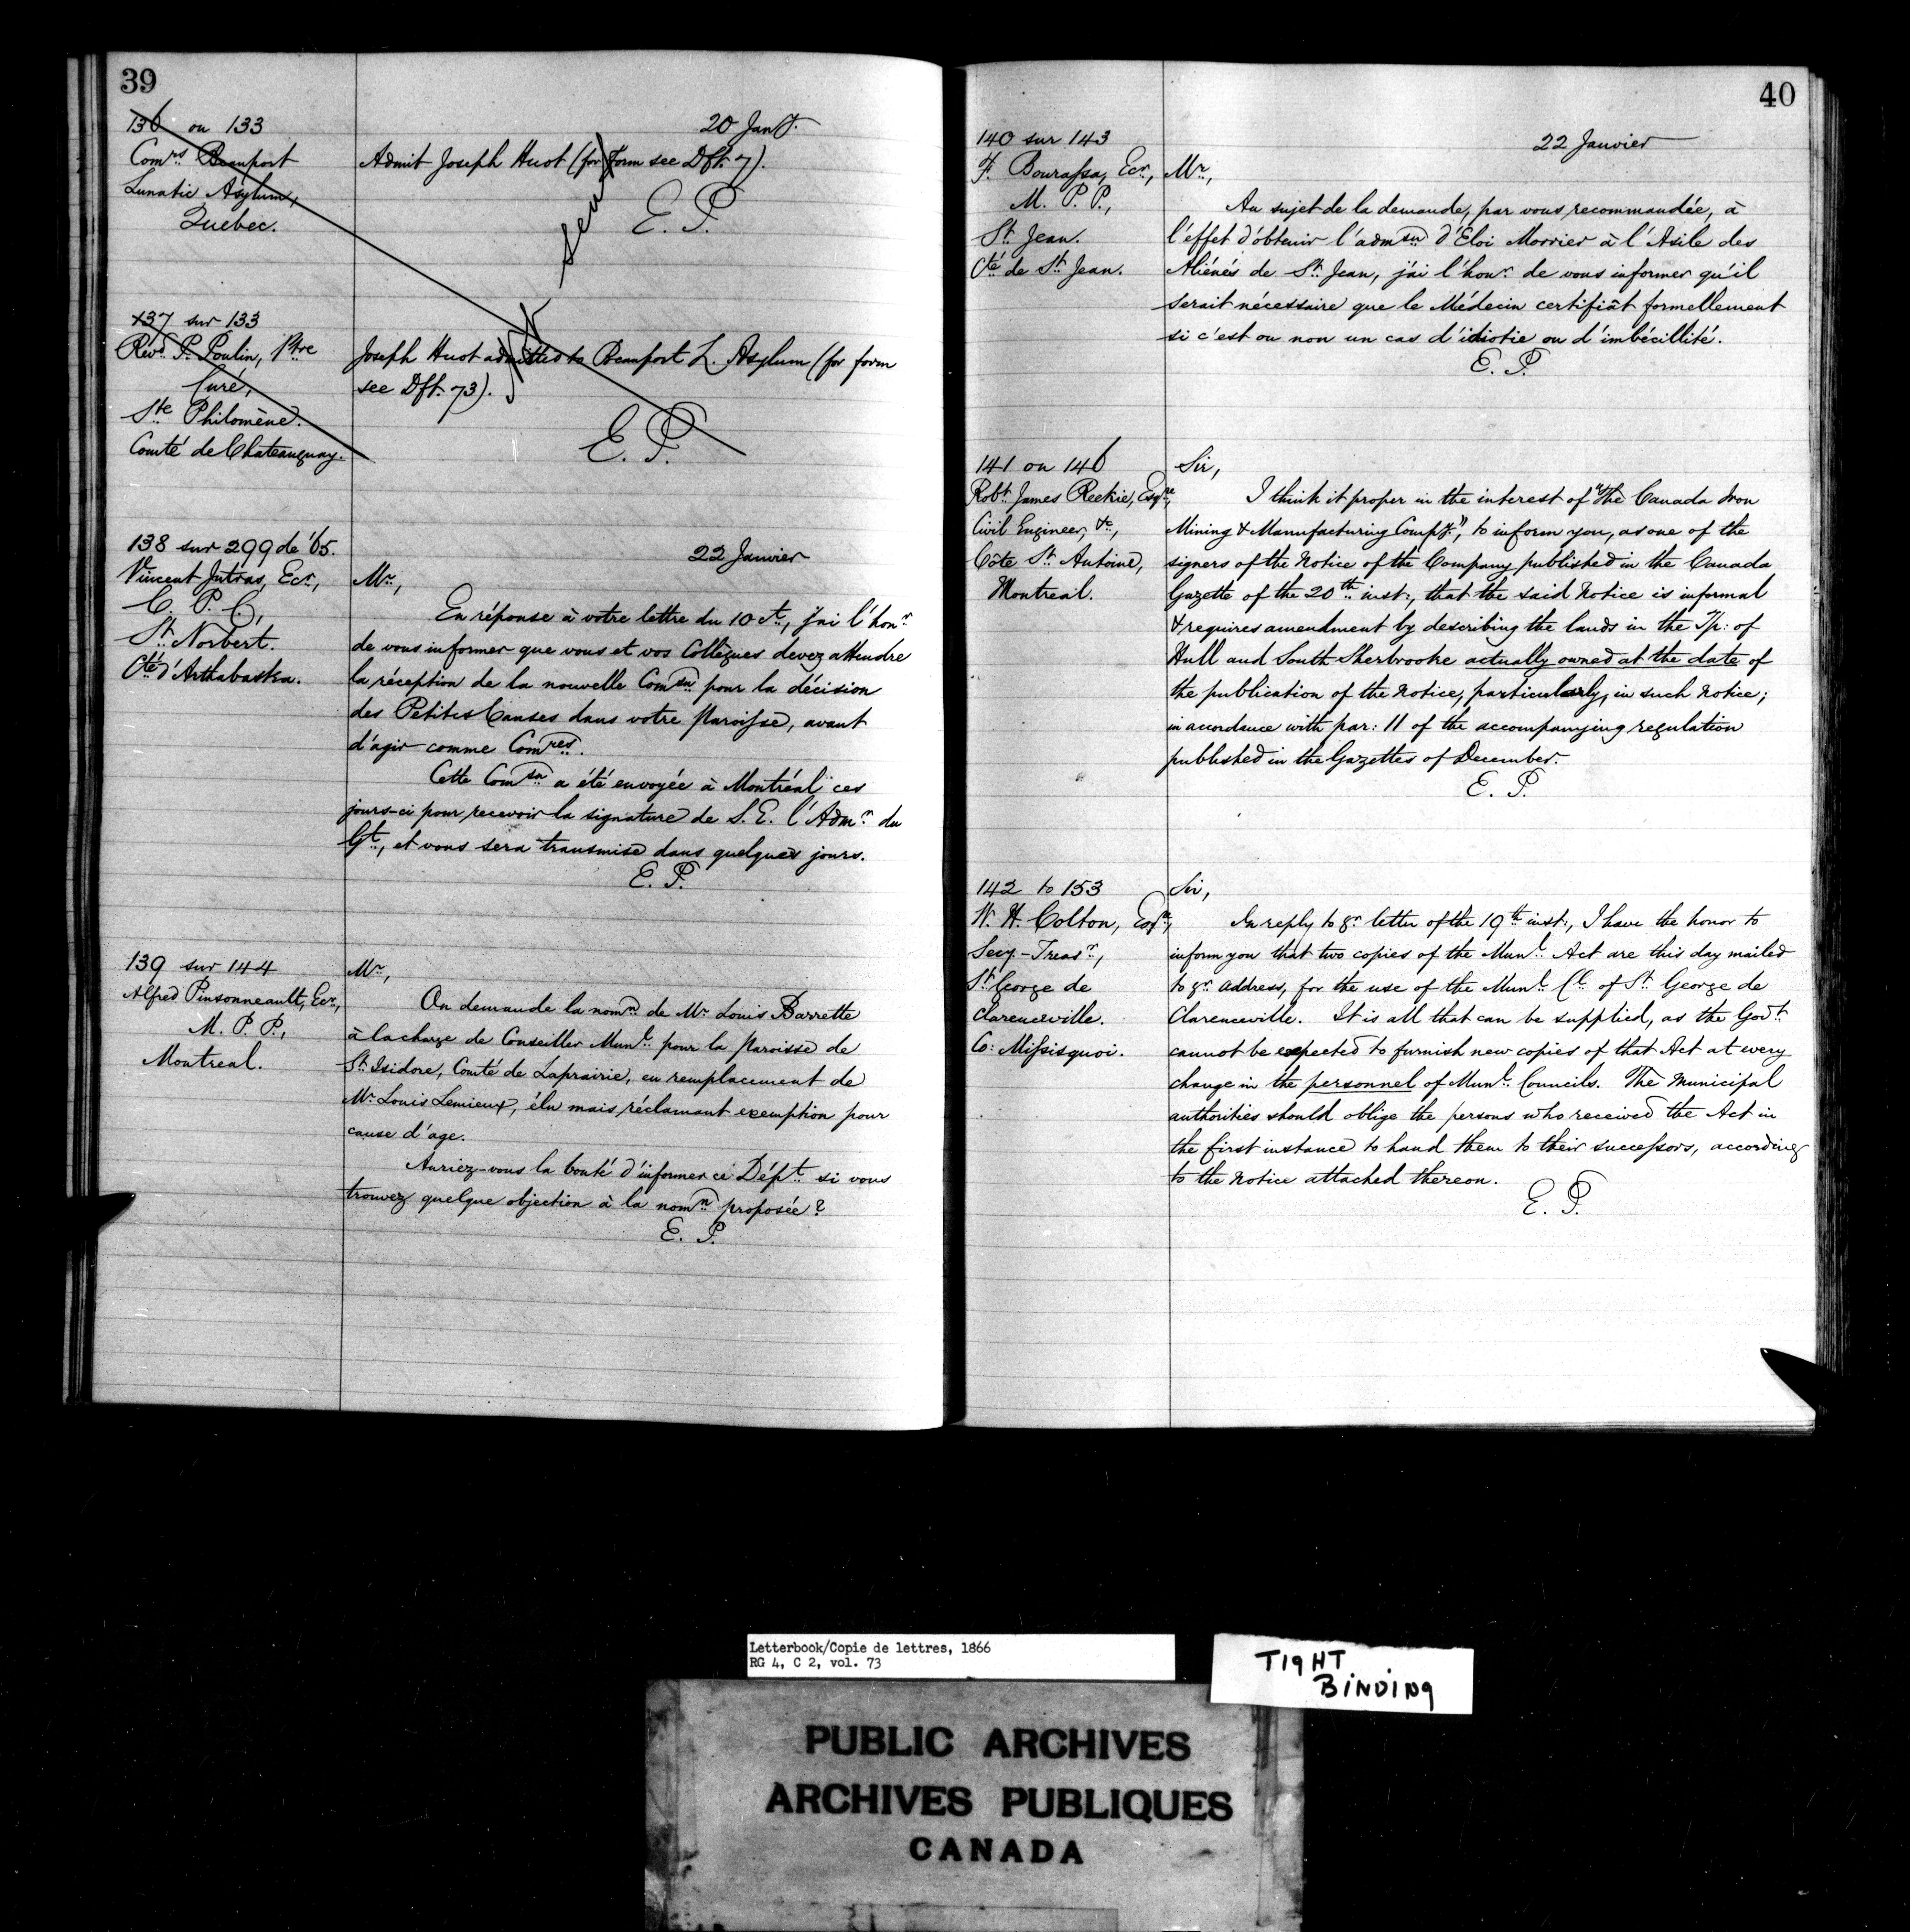 39
136 on 133
20 Jany.
Comrs Beauport
Lunatic Asylum,
Quebec.
Admit Joseph Huot (for form see Dft. 7).
E. P.
Not sent
137 sur 133
Revd. P. Poulin, Ptre
Curé,
Ste Philomène.
Comté de Chateauguay.
Joseph Huot admitted to Beauport L. Asylum (for form
see Dft. 73).
E. P.
138 sur 299 de '65.
Vincent Jutras, Ecr.,
C. P. C.,
St. Norbert.
Cté d'Arthabaska.
22 Janvier
Mr.,
En réponse à votre lettre du 10 Ct., j'ai l'honr.
de vous informer que vous et vos Collègues devez attendre
la réception de la nouvelle Comsn pour la décision
des Petites Causes dans votre Paroisse, avant
d'agir comme Comres.
Cette Comsn a été envoyée à Montréal ces
jours-ci pour recevoir la signature de S. E. l'Admr. du
Gt., et vous sera transmise dans quelques jours.
E. P.
139 sur 144
Alfred Pinsonneault, Ecr.,
M. P. P.,
Montreal.
Mr.,
On demande la nomn. de Mr. Louis Barrette
à la charge de Conseiller Munl. pour la Paroisse de
St. Isidore, Comté de Laprairie, en remplacement de
Mr. Louis Lemieux, élu mais réclamant exemption pour
cause d'age.
Auriez-vous la bonté d'informer ce Dépt. si vous
trouvez quelque objection à la nomn. proposée?
E. P.
40
140 sur 143
F. Bourassa, Ecr.,
M. P. P.,
St. Jean.
Cté de St. Jean.
22 Janvier
Mr.,
Au sujet de la demande, par vous recommandée, à
l'effet d'obtenir l'admsn d'Éloi Morrier à l'Asile des
Aliénés de St. Jean, j'ai l'honr. de vous informer qu'il
serait nécessaire que le Médecin certifiât formellement
si c'est ou non un cas d'idiotie ou d'imbécillité.
E. P.
141 on 146
Robt. James Reekie, Esqre.,
Civil Engineer, &c.,
Côte St. Antoine,
Montreal.
Sir,
I think it proper in the interest of "The Canada Iron
Mining & Manufacturing Compy.", to inform you, as one of the
signers of the Notice of the Company published in the Canada
Gazette of the 20th. inst., that the said Notice is informal
& requires amendment by describing the lands in the T/p: of
Hull and South Sherbrooke actually owned at the date of
the publication of the Notice, particularly, in such Notice;
in accordance with par: 11 of the accompanying regulation
published in the Gazettes of December.
E. P.
142 to 153
W. H. Colton, Esqr.,
Secy.-Treasr.,
St. George de
Clarenceville.
Co: Missisquoi.
Sir,
In reply to yr. letter of the 19th inst., I have the honor to
inform you that two copies of the Munl. Act are this day mailed
to yr. address, for the use of the Munl. Cl. of St. George de
Clarenceville. It is all that can be supplied, as the Govt.
cannot be expected to furnish new copies of that Act at every
change in the personnel of Munl. Councils. The Municipal
authorities should oblige the persons who received the Act in
the first instance to hand them to their successors, according
to the Notice attached thereon.
E. P.
Letterbook/Copie de lettres, 1866
RG 4, C 2, vol. 73
TIGHT
BINDING
PUBLIC ARCHIVES
ARCHIVES PUBLIQUES
CANADA